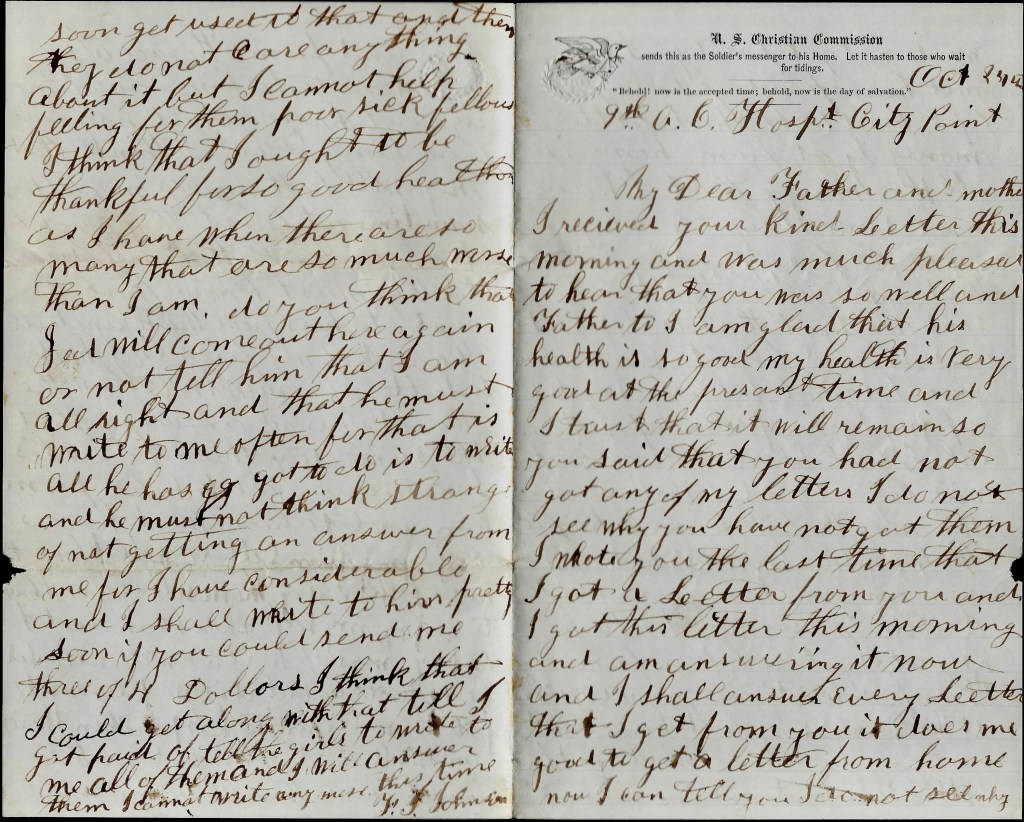 U. S. Christian Commission
sends this as the Soldier's messenger to his Home. Let it hasten to those who wait
for tidings.
"Behold! now is the accepted time; behold, now is the day of salvation."
Oct
9th A. C. Hospt City Point
My Dear Father and mothe
I recieved your kind Letter this
morning and was much pleased
to hear that you was so well and
Father to I am glad that his
health is so good my health is very
good at the presant time and
I trust that it will remain so
you said that you had not
got any of my letters I do not
see why you have not got them
I wrote you the last time that
I got a Letter from you and
I got this letter this morning
and am answering it now
and I shall answer every Letter
that I get from you it does me
good to get a letter from home
now I can tell you I do not see why
soon get used to that and then
they do not care any thing
about it but I cannot help
feeling for them poor sick fellows
I think that I ought to be
thankful for so good health
as I have when there are so
many that are so much worse
than I am. do you think that
will come out here again
or not tell him that I am
all right and that he must
write to me often for that is
all he has got to do is to write
and he must not think strange
of not getting an answer from
me for I have considerable
and I shall write to him pretty
soon if you could send me
three or 4 Dollors I think that
I could get along with that till I
get paid of tell the girls to write to
me all of them and I will answer
them I cannot write any more this time
F. J. Johnson